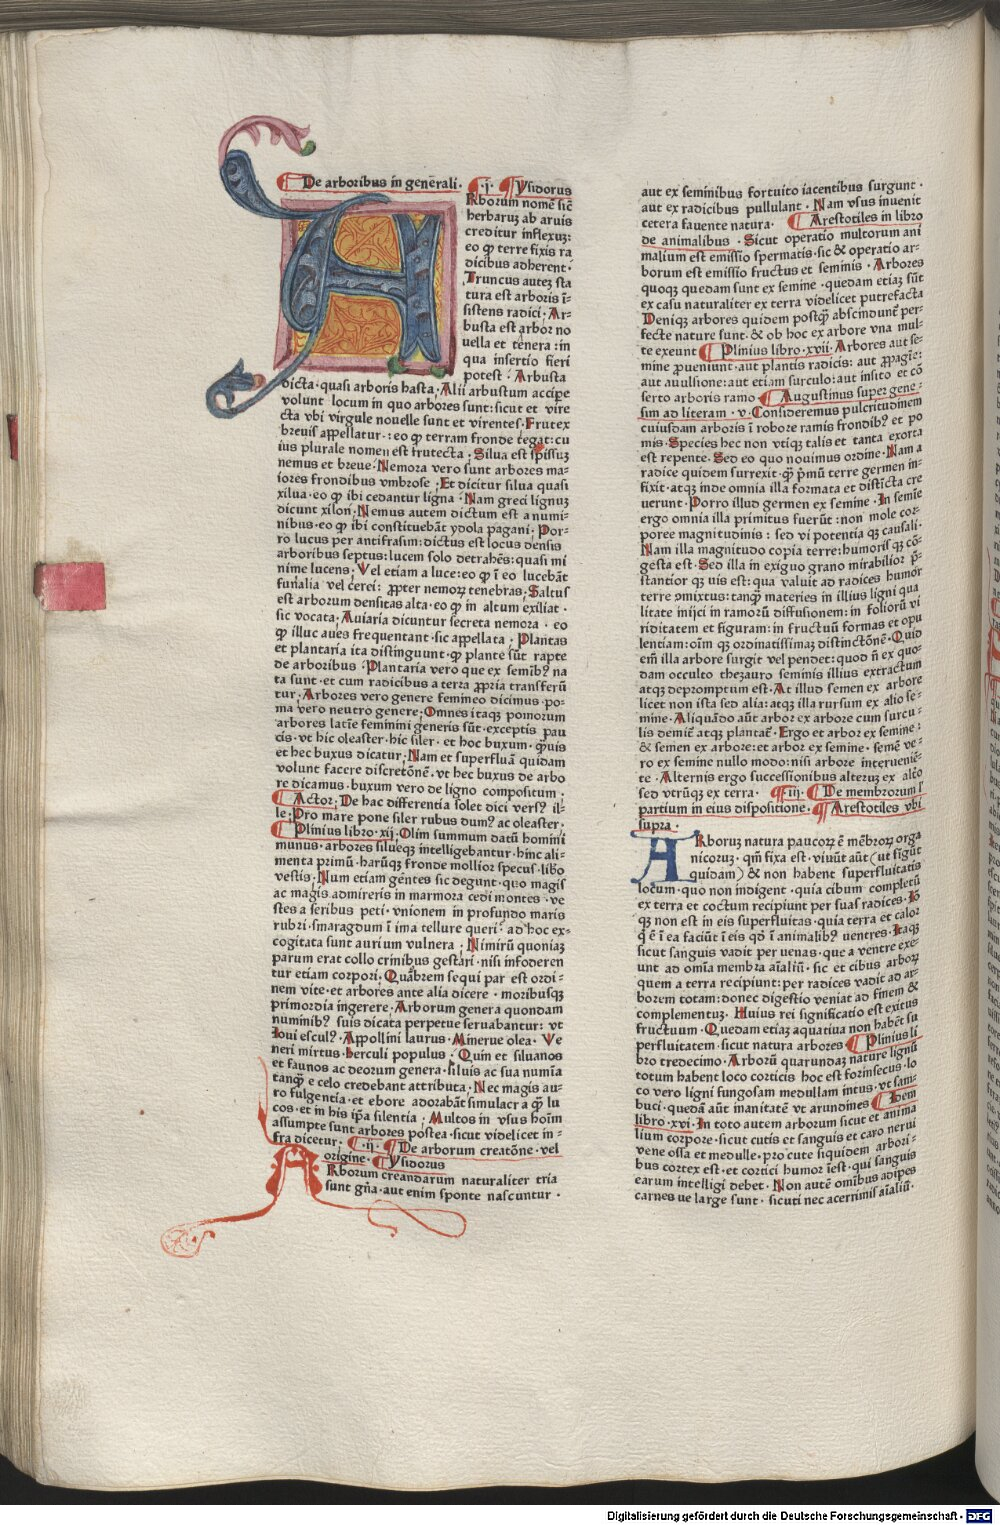 De arboribus in generali · .i. Ysidorus
ARborum nomē sic̄
herbaruꝫ ab aruis
creditur inflexuꝫ:
eo ꝙ terre fixis ra
dicibus adherent ·
Truncus auteꝫ sta
tura est arboris ī-
sistens radici · Ar-
busta est arbor no
uella et tenera : in
qua insertio fieri
potest · Arbusta
dicta · quasi arboris hasta · Alii arbustum accipe
volunt locum in quo arbores sunt: sicut et vire
cta vbi virgule nouelle sunt et virentes · Frutex
breuis appellatur · : eo ꝙ terram fronde tegat: cu
ius plurale nomen est frutecta ; Silua est spissuꝫ
nemus et breue · Nemora vero sunt arbores ma-
iores frondibus vmbrose ; Et dicitur silua quasi
xilua · eo ꝙ ibi cedantur ligna · Nam greci lignuꝫ
dicunt xilon ; Nemus autem dictum est a numi-
nibus · eo ꝙ ibi constituebāt ydola pagani ; Por-
ro lucus per antifrasim: dictus est locus densis
arboribus septus: lucem solo detrahēs: quasi mi
nime lucens ; Vel etiam a luce: eo ꝙ ī eo lucebāt
funalia vel cerei : ꝓpter nemoꝝ tenebras ; Saltus
est arborum densitas alta · eo ꝙ in altum exiliat ·
sic vocata ; Auiaria dicuntur secreta nemora · eo
ꝙ illuc aues frequentant · sic appellata ; Plantas
et plantaria ita distinguunt · ꝙ plante sūt rapte
de arboribus · Plantaria vero que ex semībꝰ na
ta sunt · et cum radicibus a terra ꝓpria transferū
tur ; Arbores vero genere femineo dicimus · po-
ma vero neutro genere ; Omnes itaqꝫ pomorum
arbores latīe feminini generis sūt · exceptis pau
cis · vt hic oleaster · hic siler · et hoc buxum · ꝙuis
et hec buxus dicatur ; Nam et superfluā quidam
volunt facere discretōnē · vt hec buxus de arbo
re dicamus · buxum vero de ligno compositum ·
Actor ; De hac differentia solet dici versꝰ il-
le ; Pro mare pone siler rubus dumꝰ ac oleaster ·
Plinius libro · xij ; Olim summum datū homini
munus · arbores silueqꝫ intelligebantur · hinc ali-
menta primū · harūqꝫ fronde mollior specus · libo
vestis · Num etiam gentes sic degunt · quo magis
ac magis admireris in marmora cedi montes · ve
stes a seribus peti · vnionem in profundo maris
rubri · smaragdum ī ima tellure queri · ad hoc ex-
cogitata sunt aurium vulnera ; Nimirū quoniaꝫ
parum erat collo crinibus gestari · nisi infoderen
tur etiam corpori ; Quābrem sequi par est ordi-
nem vite · et arbores ante alia dicere · moribusqꝫ
primordia ingerere · Arborum genera quondam
numinibꝰ suis dicata perpetue seruabantur : vt
Ioui esculꝰ · Appollini laurus · Minerue olea · Ve
neri mirtus · herculi populus · Quin et siluanos
et faunos ac deorum genera · siluis ac sua numīa
tanqꝫ̄ e celo credebant attributa · Nec magis au-
ro fulgentia · et ebore adorabāt simulacra ꝙ̄ lu
cos · et in his ip̄a silentia ; Multos in vsus hoīm
assumpte sunt arbores postea · sicut videlicet in-
fra dicetur ; .ii. De arborum creatōne · vel
origine · Ysidorus
ARborum creandarum naturaliter tria
sunt gn̄a · aut enim sponte nascuntur ·
aut ex seminibus fortuito iacentibus surgunt ·
aut ex radicibus pullulant · Nam vsus inuenit
cetera fauente natura · Arestotiles in libro
de animalibus · Sicut operatio multorum ani
malium est emissio spermatis · sic & operatio ar-
borum est emissio fructus et seminis · Arbores
quoqꝫ quedam sunt ex semine · quedam etiaꝫ sūt
ex casu naturaliter ex terra videlicet putrefacta
Deniqꝫ arbores quidem postqꝫ̄ abscindunt̄ per-
fecte nature sunt · & ob hoc ex arbore vna mul-
te exeunt Plinius libro · xvii · Arbores aut se-
mine ꝓueniunt · aut plantis radicis: aut ꝓpagīe:
aut auulsione: aut etiam surculo: aut insito et cō
serto arboris ramo Augustinus super gene-
sim ad literam · v · Consideremus pulcritudinem
cuiusdam arboris ī robore ramis frondibꝰ et po
mis · Species hec non vtiqꝫ talis et tanta exorta
est repente · Sed eo quo nouimus ordine · Nam a
radice quidem surrexit · qꝫ̄ pͥmū terre germen in-
fixit · atqꝫ inde omnia illa formata et distīcta cre
uerunt · Porro illud germen ex semine · In semīe
ergo omnia illa primitus fuerūt : non mole cor-
poree magnitudinis : sed vi potentia qꝫ causali ·
Nam illa magnitudo copia terre: humoris qꝫ cō-
gesta est · Sed illa in exiguo grano mirabilior p̄-
stantior qꝫ uis est: qua valuit ad radices humor
terre ꝓmixtus: tanqꝫ̄ materies in illius ligni qua
litate inijci in ramorū diffusionem: in folioru̅ vi
riditatem et figuram: in fructuū formas et opu
lentiam: oīm qꝫ ordinatissimaꝫ distinctōnē · Quid
em̄ illa arbore surgit vel pendet: quod n̄ ex quo-
dam occulto thezauro seminis illius extractum
atqꝫ depromptum est · At illud semen ex arbore
licet non ista sed alia: atqꝫ illa rursum ex alio se-
mine · Aliquādo aūt arbor ex arbore cum surcu-
lis demit̄ atqꝫ plantat̄ · Ergo et arbor ex semine :
& semen ex arbore: et arbor ex semine · semē ve-
ro ex semine nullo modo: nisi arbore interueniē-
te · Alternis ergo successionibus alteruꝫ ex altō
sed vtrūqꝫ ex terra · .iij. De membrorum ī
partium in eius dispositione · Arestotiles vbi
supra ·
ARboruꝫ natura paucoꝝ ē mēbroꝝ orga
nicoruꝫ · qm̄ fixa est · viuūt aūt (ut sīgūt
quidam) & non habent superfluitatis
locum · quo non indigent · quia cibum completū
ex terra et coctum recipiunt per suas radices · Iō
qꝫ non est in eis superfluitas · quia terra et calor
q̄ ē ī ea faciūt ī eis qd̄ ī animalibꝰ uentres · Itaqꝫ
sicut sanguis vadit per uenas · que a ventre exe-
unt ad omīa membra aīaliū · sic et cibus arboꝝ
quem a terra recipiunt: per radices vadit ad ar-
borem totam: donec digestio veniat ad finem &
complementuꝫ · Huius rei significatio est exitus
fructuum · Quedam etiaꝫ aquatiua non habēt su
perfluitatem · sicut natura arbores Plinius li
bro tredecimo · Arborū quarundaꝫ nature lignū
totum habent loco corticis hoc est forinsecus · lo
co vero ligni fungosam medullam intus · vt sam-
buci · quedā aūt inanitatē vt arundines Idem
libro · xvi · In toto autem arborum sicut et anima
lium corpore · sicut cutis et sanguis et caro nerui
vene ossa et medulle · pro cute siquidem arbori-
bus cortex est · et cortici humor īest · qui sanguis
earum intelligi debet · Non autē omībus adipes
carnes ue large sunt · sicuti nec acerrimis aīaliū ·
Digitalisierung gefördert durch die Deutsche Forschungsgemeinschaft - DFG